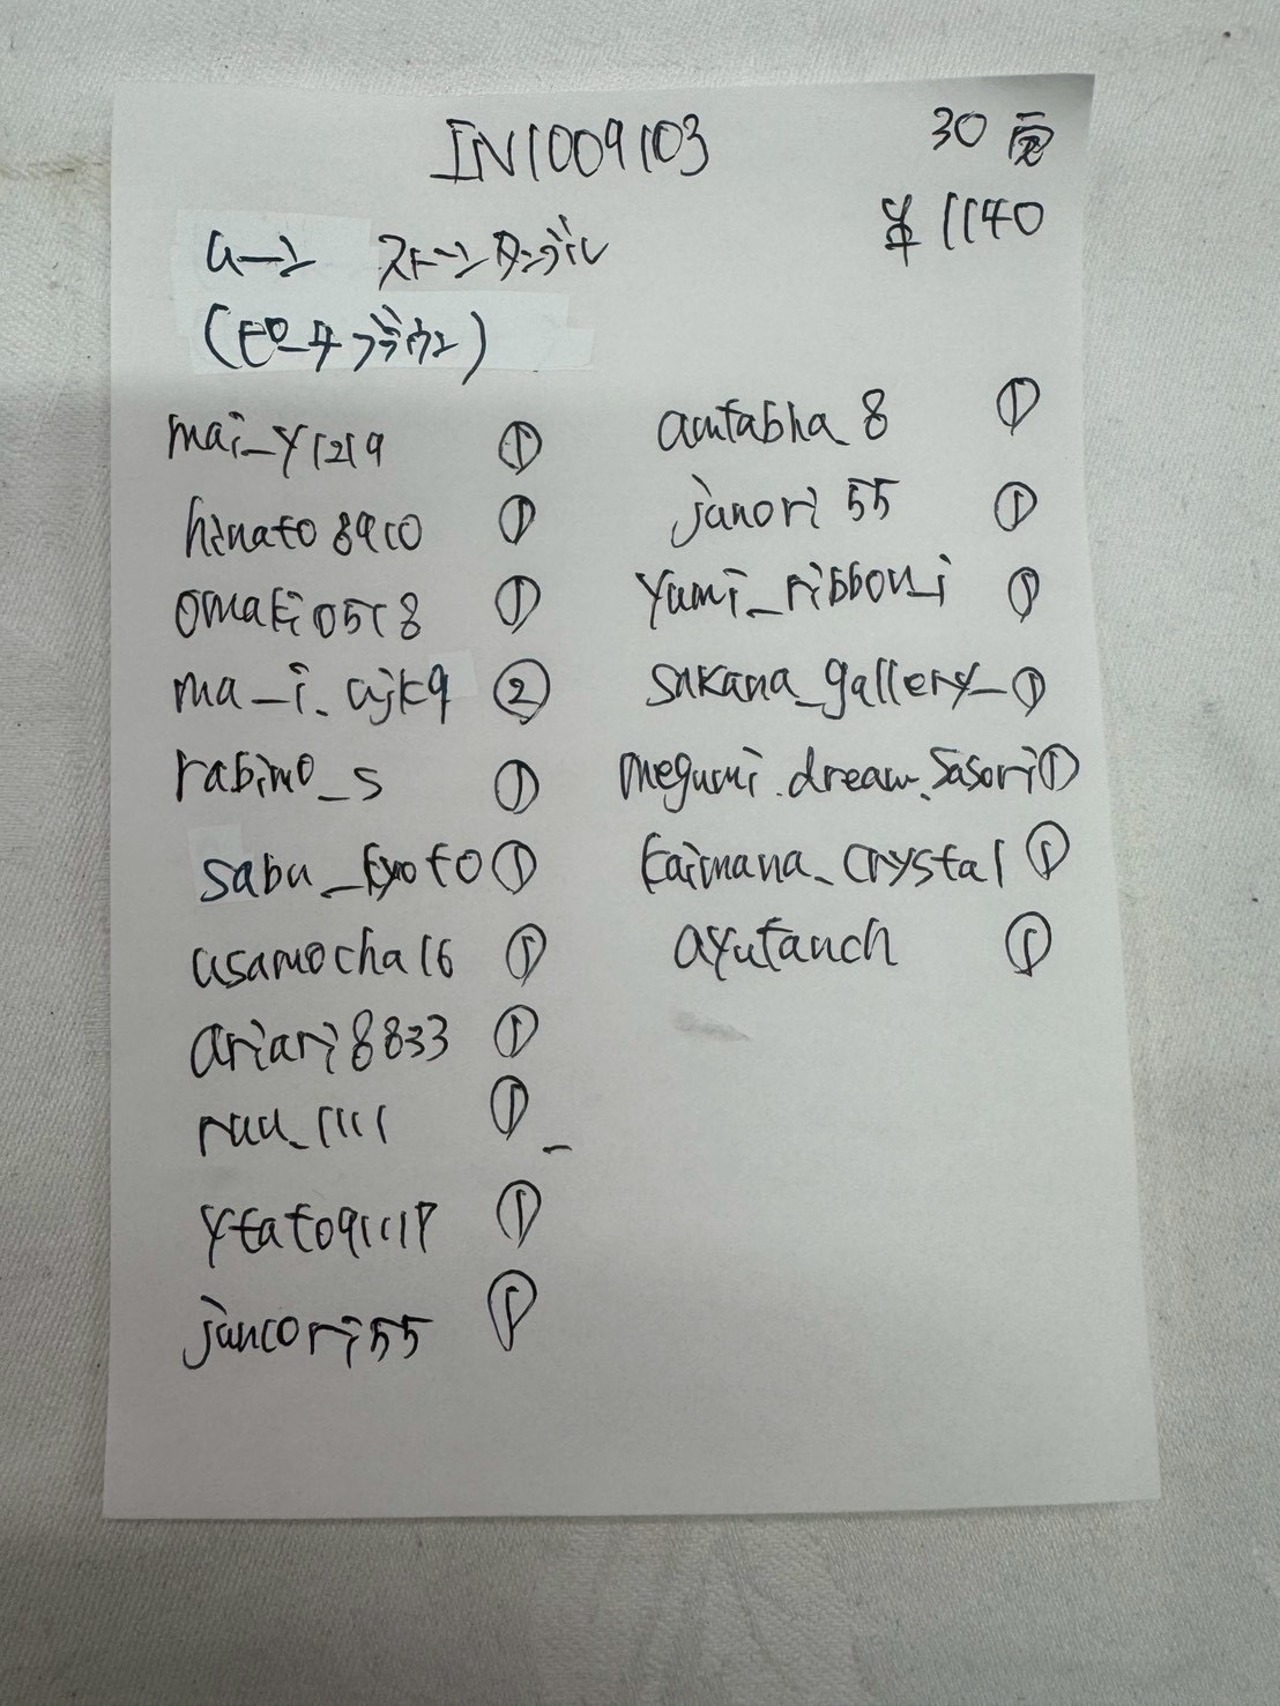 IN1009103
30
¥1140
ムーン ストーン タンブル
(ピーチブラウン)
mai_y1219 ①
hinato8910 ①
omaki0518 ①
ma_i_ajk9 ②
rabimo_s ①
sabu_kyoto ①
asamocha16 ①
ariari8833 ①
ruu_1111 ①
①
jancori55 ①
①
janori55 ①
yumi_ribbon_i ①
sakana_gallery_ ①
megumi.dream.sasori ①
kaimana_crystal ①
ayutanch ①